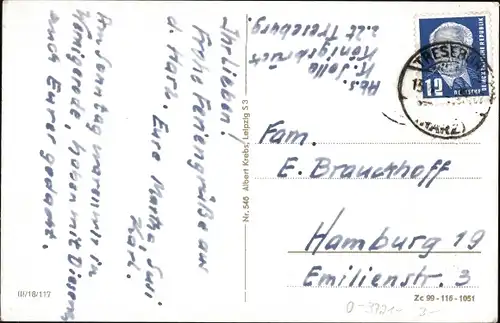 Ihr Lieben!
Frohe Feriengrüße aus
d. Harz. Eure Martha Susi
Karl.
Am Sonntag waren wir in
Königerode, haben mit Dierens
auch Eurer gedacht.
Abs.
K.
Königsbruch
z. Zt. Treseburg
TRESEBURG
(HARZ)
12
DEUTSCHE
DEMOKRATISCHE REPUBLIK
Fam.
E. Brauckhoff
Hamburg 19
Emilienstr. 3
Nr. 546 Albert Krebs, Leipzig S 3
III/18/117
Zc 99 - 116 - 1051